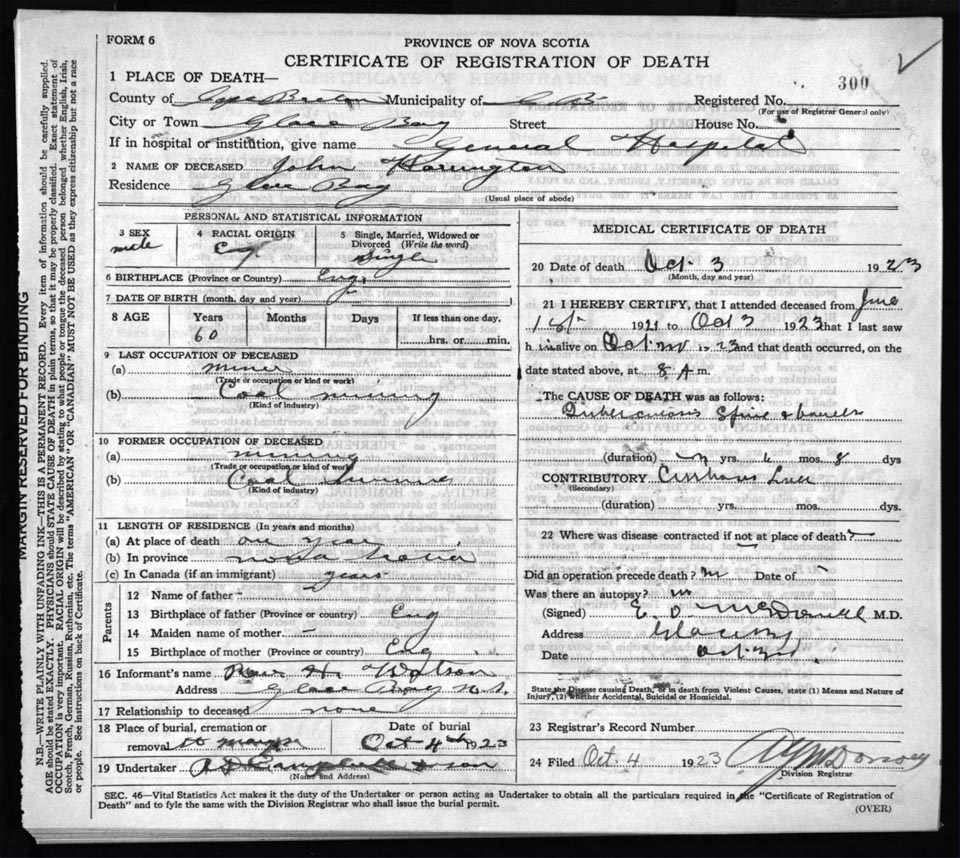 FORM 6
PROVINCE OF NOVA SCOTIA
CERTIFICATE OF REGISTRATION OF DEATH
300
1 PLACE OF DEATH—
County of Cape Breton Municipality of C.B. Registered No.
(For use of Registrar General only)
City or Town Glace Bay Street House No.
If in hospital or institution, give name General Hospital
2 NAME OF DECEASED John Harrington
Residence Glace Bay
(Usual place of abode)
PERSONAL AND STATISTICAL INFORMATION
3 SEX male
4 RACIAL ORIGIN Eng
5 Single, Married, Widowed or Divorced (Write the word) Single
6 BIRTHPLACE (Province or Country) Eng.
7 DATE OF BIRTH (month, day and year)
8 AGE Years 60 Months Days If less than one day, hrs. or min.
9 LAST OCCUPATION OF DECEASED
(a) miner
(Trade or occupation or kind or work)
(b) Coal mining
(Kind of industry)
10 FORMER OCCUPATION OF DECEASED
(a) mining
(Trade or occupation or kind of work)
(b) Coal
(Kind of industry)
11 LENGTH OF RESIDENCE (In years and months)
(a) At place of death one year
(b) In province nova scotia
(c) In Canada (if an immigrant) years
Parents
12 Name of father –
13 Birthplace of father (Province or country) Eng
14 Maiden name of mother –
15 Birthplace of mother (Province or country) Eng
16 Informant's name H. Watson
Address Glace Bay N.S.
17 Relationship to deceased none
18 Place of burial, cremation or removal
Date of burial Oct 4th 1923
19 Undertaker Campbell & son
(Name and Address)
MEDICAL CERTIFICATE OF DEATH
20 Date of death Oct 3 1923
(Month, day and year)
21 I HEREBY CERTIFY, that I attended deceased from June
1st 1921 to Oct 3 1923 that I last saw
h im alive on Oct 1923 and that death occurred, on the
date stated above, at 8 A m.
The CAUSE OF DEATH was as follows:
Tuberculosis Spine & bowels
(duration) yrs. mos. 8 dys
CONTRIBUTORY Cirrhosis Liver
(Secondary)
(duration) yrs. mos. dys.
22 Where was disease contracted if not at place of death? –
Did an operation precede death? no Date of
Was there an autopsy? no
(Signed) E. O. McDonald M.D.
Address Glace Bay
Date Oct 3rd
State the Disease causing Death, or in death from Violent Causes, state (1) Means and Nature of
Injury, (2) Whether Accidental, Suicidal or Homicidal.
23 Registrar's Record Number
24 Filed Oct 4 1923
Division Registrar
SEC. 46—Vital Statistics Act makes it the duty of the Undertaker or person acting as Undertaker to obtain all the particulars required in the "Certificate of Registration of
Death" and to fyle the same with the Division Registrar who shall issue the burial permit.
(OVER)
MARGIN RESERVED FOR BINDING
N.B.—WRITE PLAINLY WITH UNFADING INK—THIS IS A PERMANENT RECORD. Every item of information should be carefully supplied.
AGE should be stated EXACTLY. PHYSICIANS should STATE CAUSE OF DEATH in plain terms, so that it may be properly classified. Exact statement of
OCCUPATION is very important. RACIAL ORIGIN will be described by stating to what people or tongue the deceased person belonged whether English, Irish,
Scotch, French, German, Russian, Ruthenian, etc. The terms "AMERICAN" or "CANADIAN" MUST NOT BE USED as they express citizenship but not a race
or people. See instructions on back of Certificate.